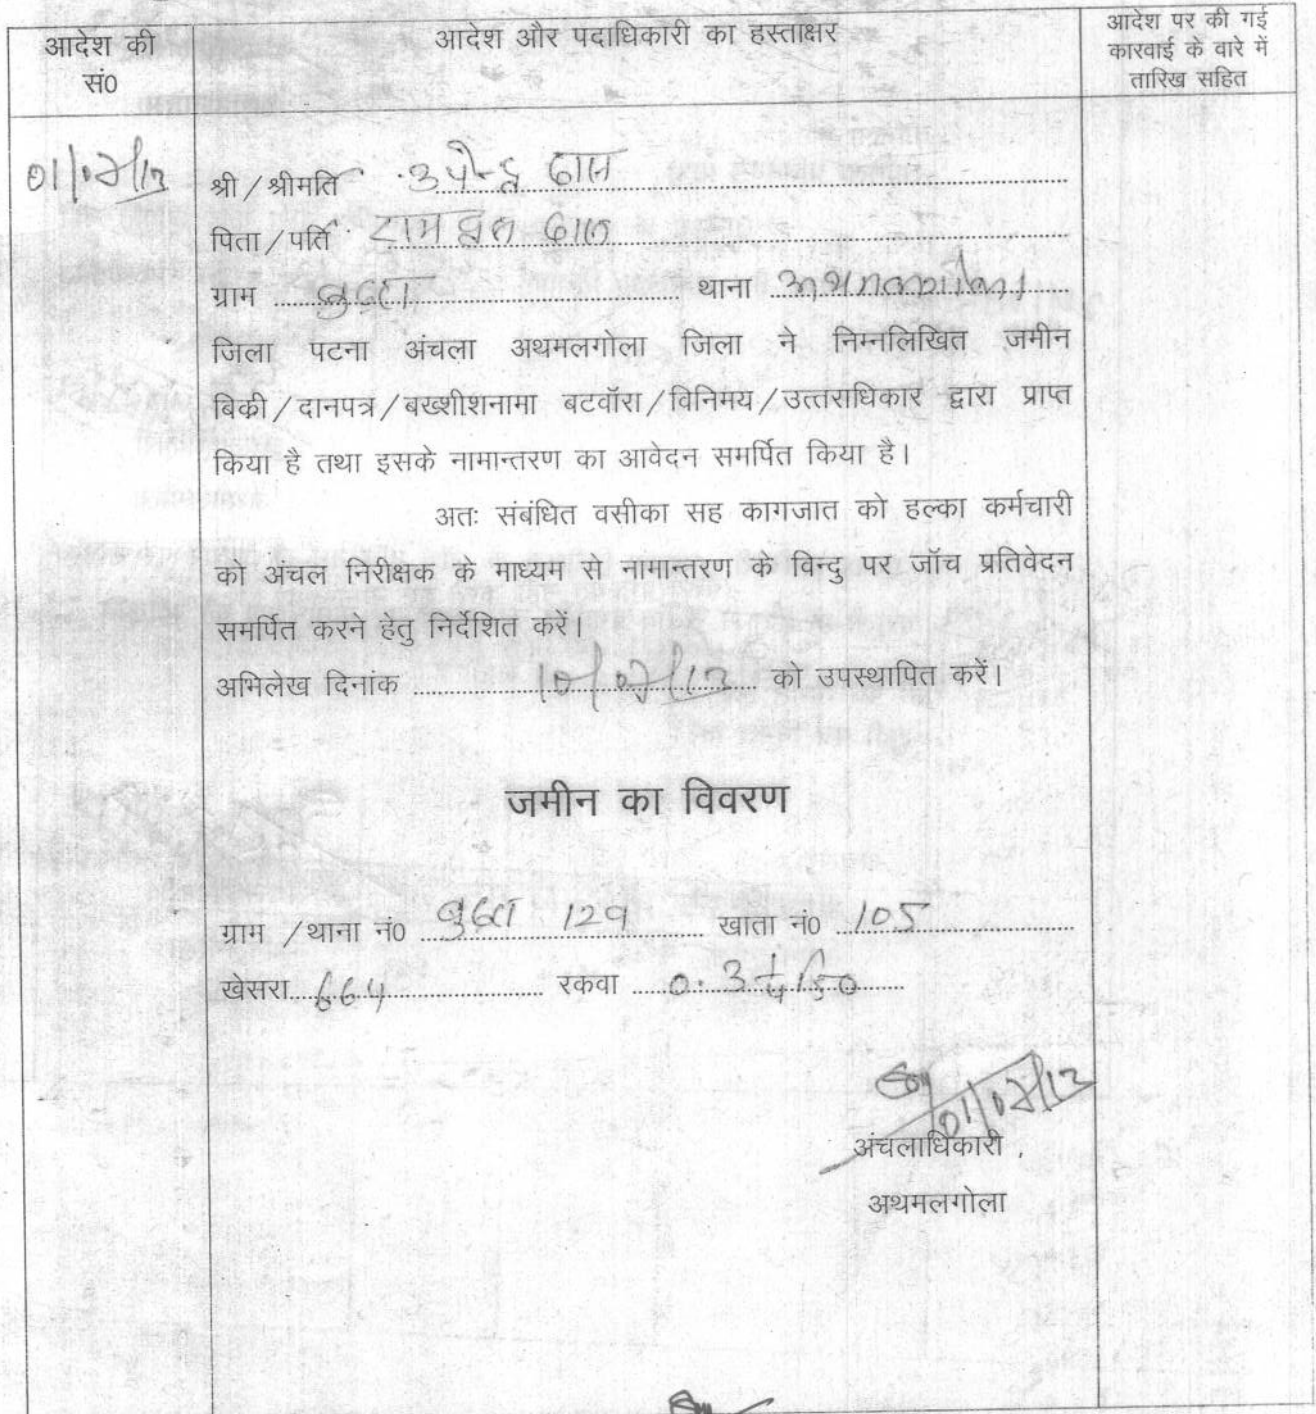 आदेश की
सं0
आदेश और पदाधिकारी का हस्ताक्षर
आदेश पर की गई
कारवाई के वारे में
तारिख सहित
01/07/13
श्री/श्रीमति उपेन्द्र दास
पिता/पति राम दास
ग्राम थाना अथमलगोला
जिला पटना अंचला अथमलगोला जिला ने निम्नलिखित जमीन
बिक्री/दानपत्र/बख्शीशनामा बटवॉरा/विनिमय/उत्तराधिकार द्वारा प्राप्त
किया है तथा इसके नामान्तरण का आवेदन समर्पित किया है।
अतः संबंधित वसीका सह कागजात को हल्का कर्मचारी
को अंचल निरीक्षक के माध्यम से नामान्तरण के विन्दु पर जॉच प्रतिवेदन
समर्पित करने हेतु निर्देशित करें।
अभिलेख दिनांक को उपस्थापित करें।
जमीन का विवरण
ग्राम /थाना नं0 129 खाता नं0 105
खेसरा 664 रकवा
01/07/13
अंचलाधिकारी
अथमलगोला